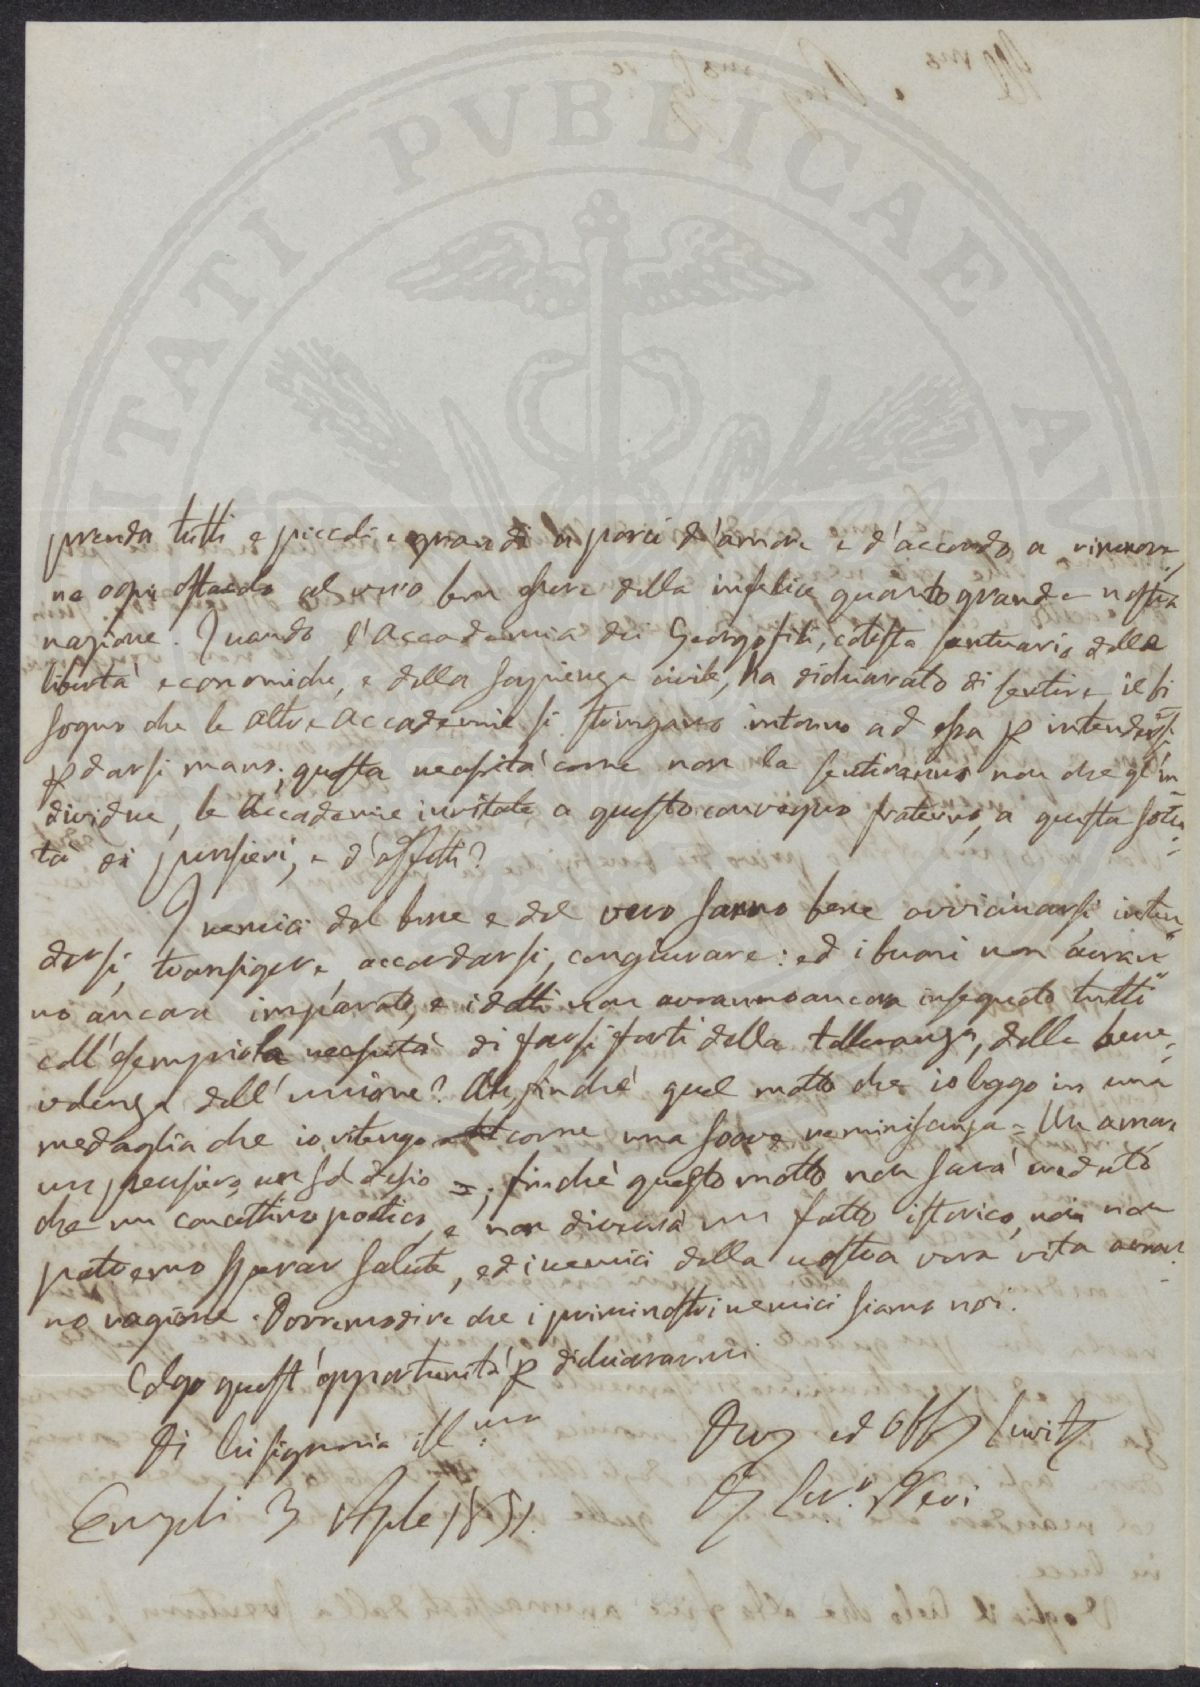 PVBLICAE
prenda tutti e piccoli e grandi a porci d'amore e d'accordo a rimuover
ne ogni ostacolo al vero ben essere della infelice quanto grande nostra
nazione. Quando l'Accademia dei Georgofili, cotesto santuario della
libertà economiche, e della sapienza civile, ha dichiarato di sentire il bi
sogno che le altre Accademie si stringano intorno ad essa p intendersi
p darsi mano; questa necessità come non la sentiranno non che gl'in=
dividui, le Accademie invitate a questo convegno fraterno, a questa
tà di pensieri, e d'affetti?
I nemici del bene e del vero sanno bene avvicinarsi inten=
dersi, transigere accordarsi, congiurare: ed i buoni non avran"
no ancora imparato, e i dotti non avranno ancora insegnato tutti"
coll'esempio la necessità di farsi forti della tolleranza, della bene=
volenza dell'unione? Ah finchè quel motto che io leggo in una
medaglia che io ritengo come una soave reminiscenza = Un amor,
un pensiero, un sol desio =; finchè questo motto non sarà creduto
che un concettino poetico, e non diverrà un fatto istorico, noi non
potremo sperar salute, ed i nemici della nostra vera vita avran=
no ragione. Dovremo dire che i primi nostri nemici siamo noi.
Colgo quest'opportunità p dichiararmi
Di Lei signoria Ill.ma
ed Obb
Empoli 3 Aple 1851.